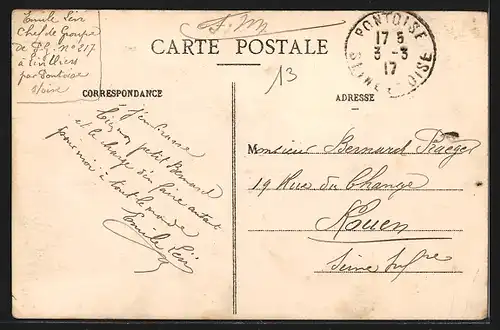 Emile Lév
Chef de Groupe
de P.G. N° 217
à Livilliers
par Pontoise
S/oise
F.M
CARTE POSTALE
PONTOISE
17 5
3 -3
17
SEINE ET OISE
13
CORRESPONDANCE
ADRESSE
J'embrasse
bien mon petit Bernard
et le charge d'en faire autant
pour moi à tout le monde
Emile Lév
Monsieur Bernard Praeger
19 Rue du Change
Rouen
Seine Infre